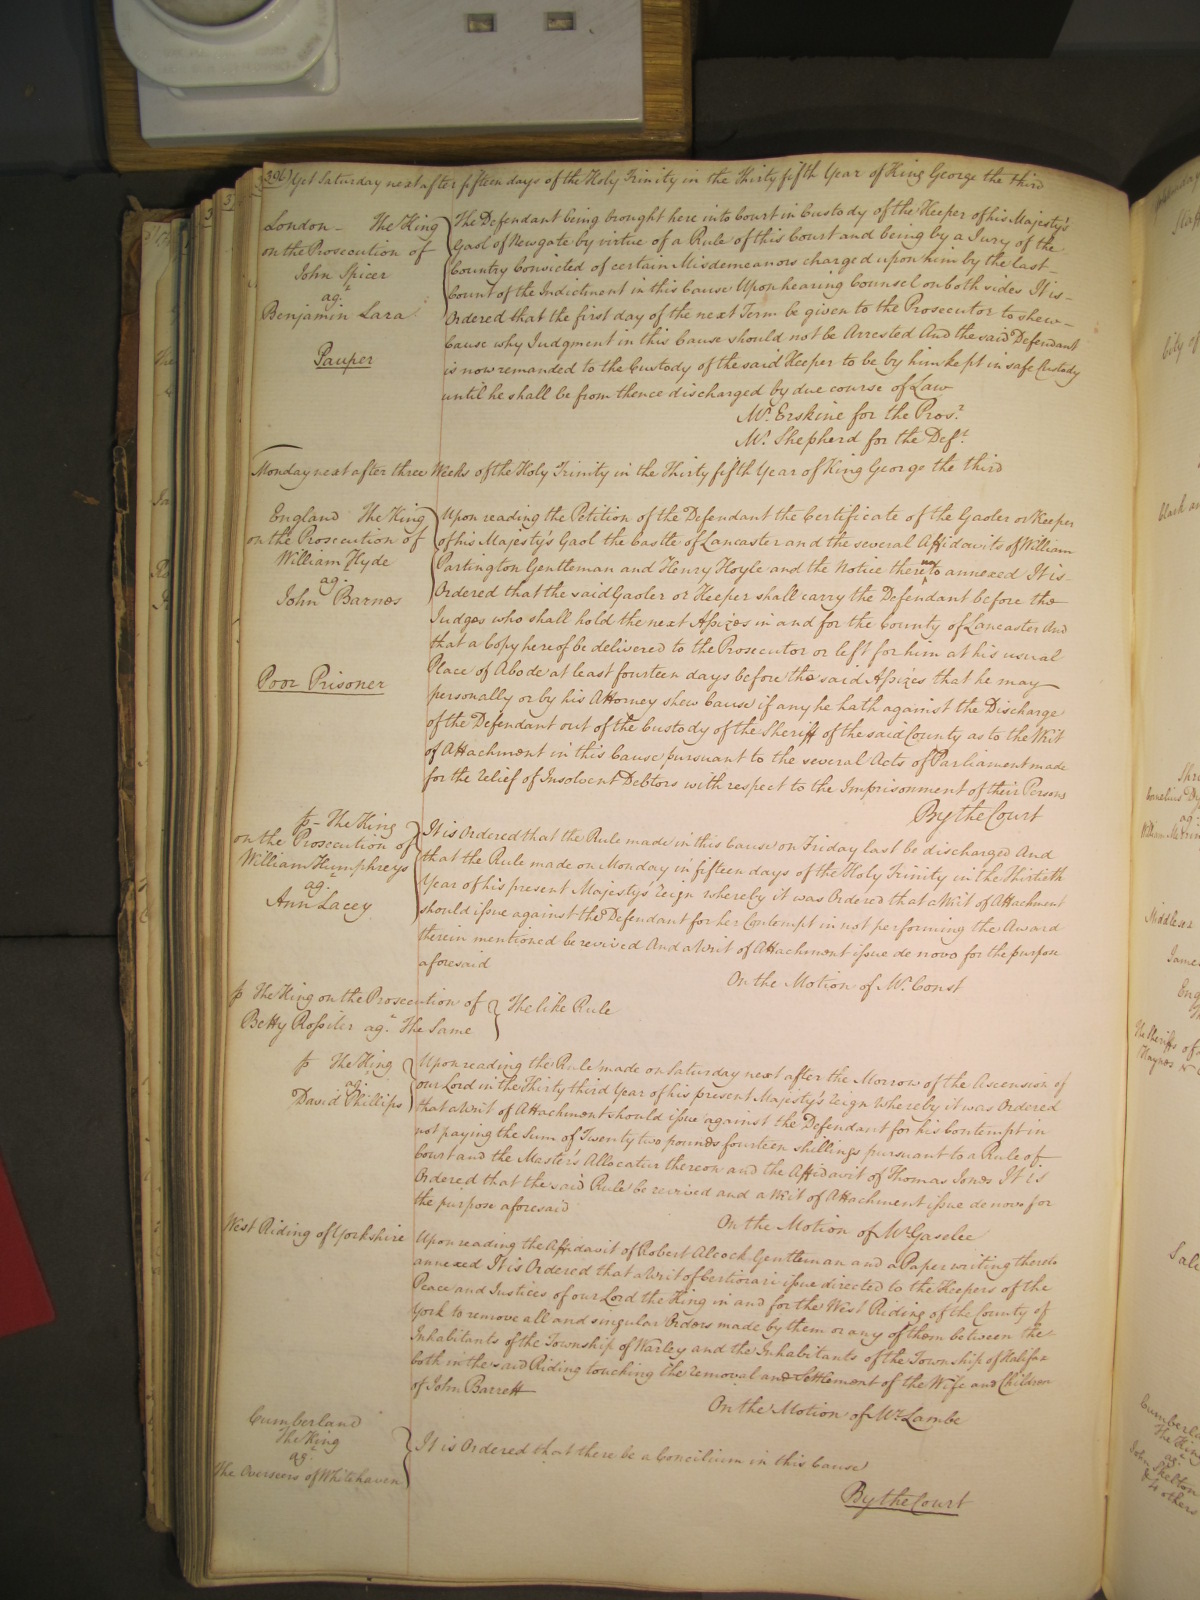 306) Yet Saturday next after fifteen days of the Holy Trinity in the Thirty fifth Year of King George the third
London - The King
on the Prosecution of
John Spicer
agt
Benjamin Lara
Pauper
The Defendant being brought here into Court in Custody of the Keeper of his Majesty's
Gaol of Newgate by virtue of a Rule of this Court and being by a Jury of the
Country Convicted of certain Misdemeanors charged upon him by the last
Count of the Indictment in this Cause Upon hearing Counsel on both sides It is
Ordered that the first day of the next Term be given to the Prosecutor to shew
Cause why Judgment in this Cause should not be Arrested And the said Defendant
is now remanded to the Custody of the said Keeper to be by him kept in safe Custody
until he shall be from thence discharged by due course of Law
Mr. Erskine for the Prosr.
Mr. Shepherd for the Deft.
Monday next after three Weeks of the Holy Trinity in the Thirty fifth Year of King George the third
England The King
on the Prosecution of
William Hyde
agt
John Barnes
Poor Prisoner
Upon reading the Petition of the Defendant the Certificate of the Gaoler or Keeper
of his Majesty's Gaol the Castle of Lancaster and the several Affidavits of William
Partington Gentleman and Henry Hoyle and the Notice thereunto annexed It is
Ordered that the said Gaoler or Keeper shall carry the Defendant before the
Judges who shall hold the next Assizes in and for the County of Lancaster And
that a Copy hereof be delivered to the Prosecutor or left for him at his usual
Place of Abode at least fourteen days before the said Assizes that he may
personally or by his Attorney shew Cause if any he hath against the Discharge
of the Defendant out of the Custody of the Sheriff of the said County as to the Writ
of Attachment in this Cause pursuant to the several Acts of Parliament made
for the relief of Insolvent Debtors with respect to the Imprisonment of their Persons
By the Court
þ - The King
on the Prosecution of
William Humphreys
agt
Ann Lacey
It is Ordered that the Rule made in this Cause on Friday last be discharged And
that the Rule made on Monday in fifteen days of the Holy Trinity in the Thirtieth
Year of his present Majesty's reign whereby it was Ordered that a Writ of Attachment
should issue against the Defendant for her Contempt in not performing the Award
therein mentioned be revived And a Writ of Attachment issue de novo for the purpose
aforesaid
On the Motion of Mr. Const
þ The King on the Prosecution of
Betty Rossiter agt The Same
The like Rule
þ The King
agt
David Phillips
Upon reading the Rule made on Saturday next after the Morrow of the Ascension of
our Lord in the Thirty third Year of his present Majesty's reign Whereby it was Ordered
that a Writ of Attachment should issue against the Defendant for his Contempt in
not paying the Sum of Twenty two pounds fourteen shillings pursuant to a Rule of
Court and the Master's Allocatur thereon and the Affidavit of Thomas Jones It is
Ordered that the said Rule be revived and a Writ of Attachment issue de novo for
the purpose aforesaid
On the Motion of Mr. Gaselee
West Riding of Yorkshire
Upon reading the Affidavit of Robert Alcock Gentleman and a Paper writing thereto
annexed It is Ordered that a Writ of Certiorari issue directed to the Keepers of the
Peace and Justices of our Lord the King in and for the West Riding of the County of
York to remove all and singular Orders made by them or any of them between the
Inhabitants of the Township of Warley and the Inhabitants of the Township of Halifax
both in the said Riding touching the removal and Settlement of the Wife and Children
of John Barrett
On the Motion of Mr. Lambe
Cumberland
The King
agt
The Overseers of Whitehaven
It is Ordered that there be a Concilium in this Cause
By the Court
City of
Middlesex
James
Cumberland
The King
agt
John Skelton
& 4 others